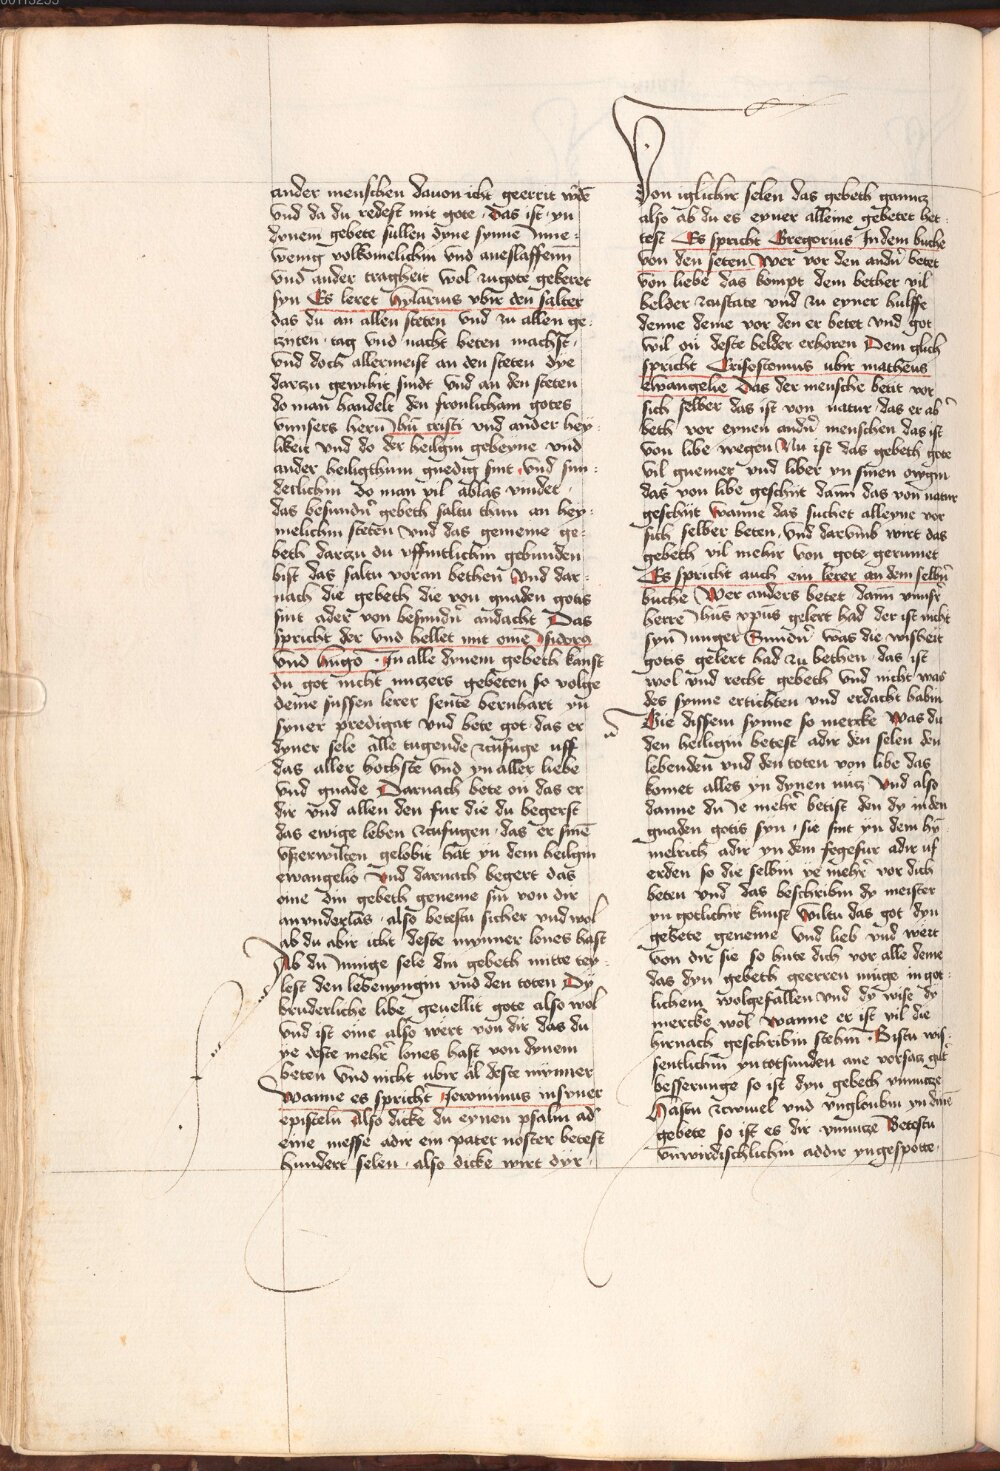 ander menschen dauon icht geerrit wͦdē
vnd da du redest mit gote · das ist · yn
dynem gebete sullen dyne synne Inne=
wenig volkomelichin vnd aneslaffenn
vnd ander tragheit wol zugote gekeret
syn Es leret hylarius vbir den salter
das du an allen steten vnd zu allen ge=
cziten · tag vnd nacht beten machst ·
vnd doch allermeist an den steten dye
darzu gewihit sindt vnd an den steten
do man handelt den fronlicham gotes
vnnsers hern Jhū cristi vnd ander hey=
likeit vnd do der heilgin gebeyne vnd
ander heiligthum gnedig sint vnd sun=
derlichin do man vil ablas vindet ·
das besundn̄ gebeth saltu thun an hey=
melichin steten vnd das gemeine ge=
beth darczu du uffintlichin gebunden
bist das saltu voran bethen vnd dar=
nach die gebeth die von gnaden gotis
sint ader von besundn̄ andacht Das
spricht der vnd hellet mit ome ysidorꝯ
vnd hugo · In alle dynem gebeth kanst
du got nicht niczers gebeten so volge
deme sussen lerer sente bernhart yn
syner predigat vnd bete got · das er
dyner sele alle tugende czufuge uff
das aller hochste vnd yn aller liebe
vnd gnade Darnach bete on das er
dir vnd allen den fur die du begerst
das ewige leben czufugen · das er sinē
vszerwilten gelobit hat yn dem heilgin
ewangelio vnd darnach begert das
ome din gebeth geneme sin von dir
anvnderlas · also betestu sicher vnd wol
ab du abir icht deste mynner lones hast
Ab du Innige sele din gebeth mitte tey=
lest den lebenyngin vnd den toten Dy
bruderliche libe geuellit gote also wol
vnd ist ome also wert von dir das du
ye deste mehr̄ lones hast von dynem
beten vnd nicht ubir al deste mynner
Wanne es spricht Jeronimus in syner
episteln Also dicke du eynen psalm ad̓
eine messe adir ein pater noster betest
hundert selen · also dicke wirt dyr ·
Von iglichir selen das gebeth gancz
also ab du es eyner alleine gebetet het=
test Es spricht Gregorius In dem buche
von den seten Wer vor den andn̄ betet
von liebe das kompt dem bether vil
belder czustate vnd zu eyner hulffe
denne deme vor den er betet vnd got
wil on deste belder erhoren Dem glich
spricht Crisostomus ubir matheus
ewangelie Das der mensche betit vor
sich selber das ist von natur · das er ab̓
beth vor eynen andn̄ menschen das ist
von libe wegen Nu ist das gebeth gote
vil gnemer vnd liber yn sinen owgin
das von libe geschyt dann das von natur
geschyt Wanne das suchet alleyne vor
sich selber beten · vnd darvmb wirt das
gebeth vil mehir von gote gerumet
Es spricht auch ein lerer an dem selbn̄
buche Wer anders betet dann vnnsr̄
herre Jhūs xpūs gelert had der ist nicht
syn iunger Sundn̄ was die wisheit
gotis gelert had zu bethen · das ist
wol vnd recht gebeth vnd nicht was
des synne ertichten vnd erdacht habin
Bie dissem synne so mercke Was du
den heiligin betest adir den selen den
lebenden vnd den toten von libe das
komet alles yn dynen nūcz Vnd also
danne du Je mehr̄ betist den dy in den
gnaden gotis syn · sie sint yn dem hy=
melrich adir yn dem fegefur adir uf
erden so die selbin ye mehr̄ vor dich
beten vnd das beschribin dy meister
yn gotlichir kunst Wiltu das got dyn
gebete geneme vnd lieb vnd wert
von dir sie so hute dich vor alle deme
das dyn gebeth geerren muge in got=
lichem wolgefallen vnd dy wise dy
mercke wol Wanne er ist vil die
hirnach geschribin stehin · Bistu wis=
sentlichin yn totsunden ane vorsacz gut̓
besserunge so ist dyn gebeth vnnutze
Hastu czwiuel vnd vngloubin yn dinē
gebete so ist es dir vnnucze Betestu
vnwirdischlichin addir yn gespotte ·